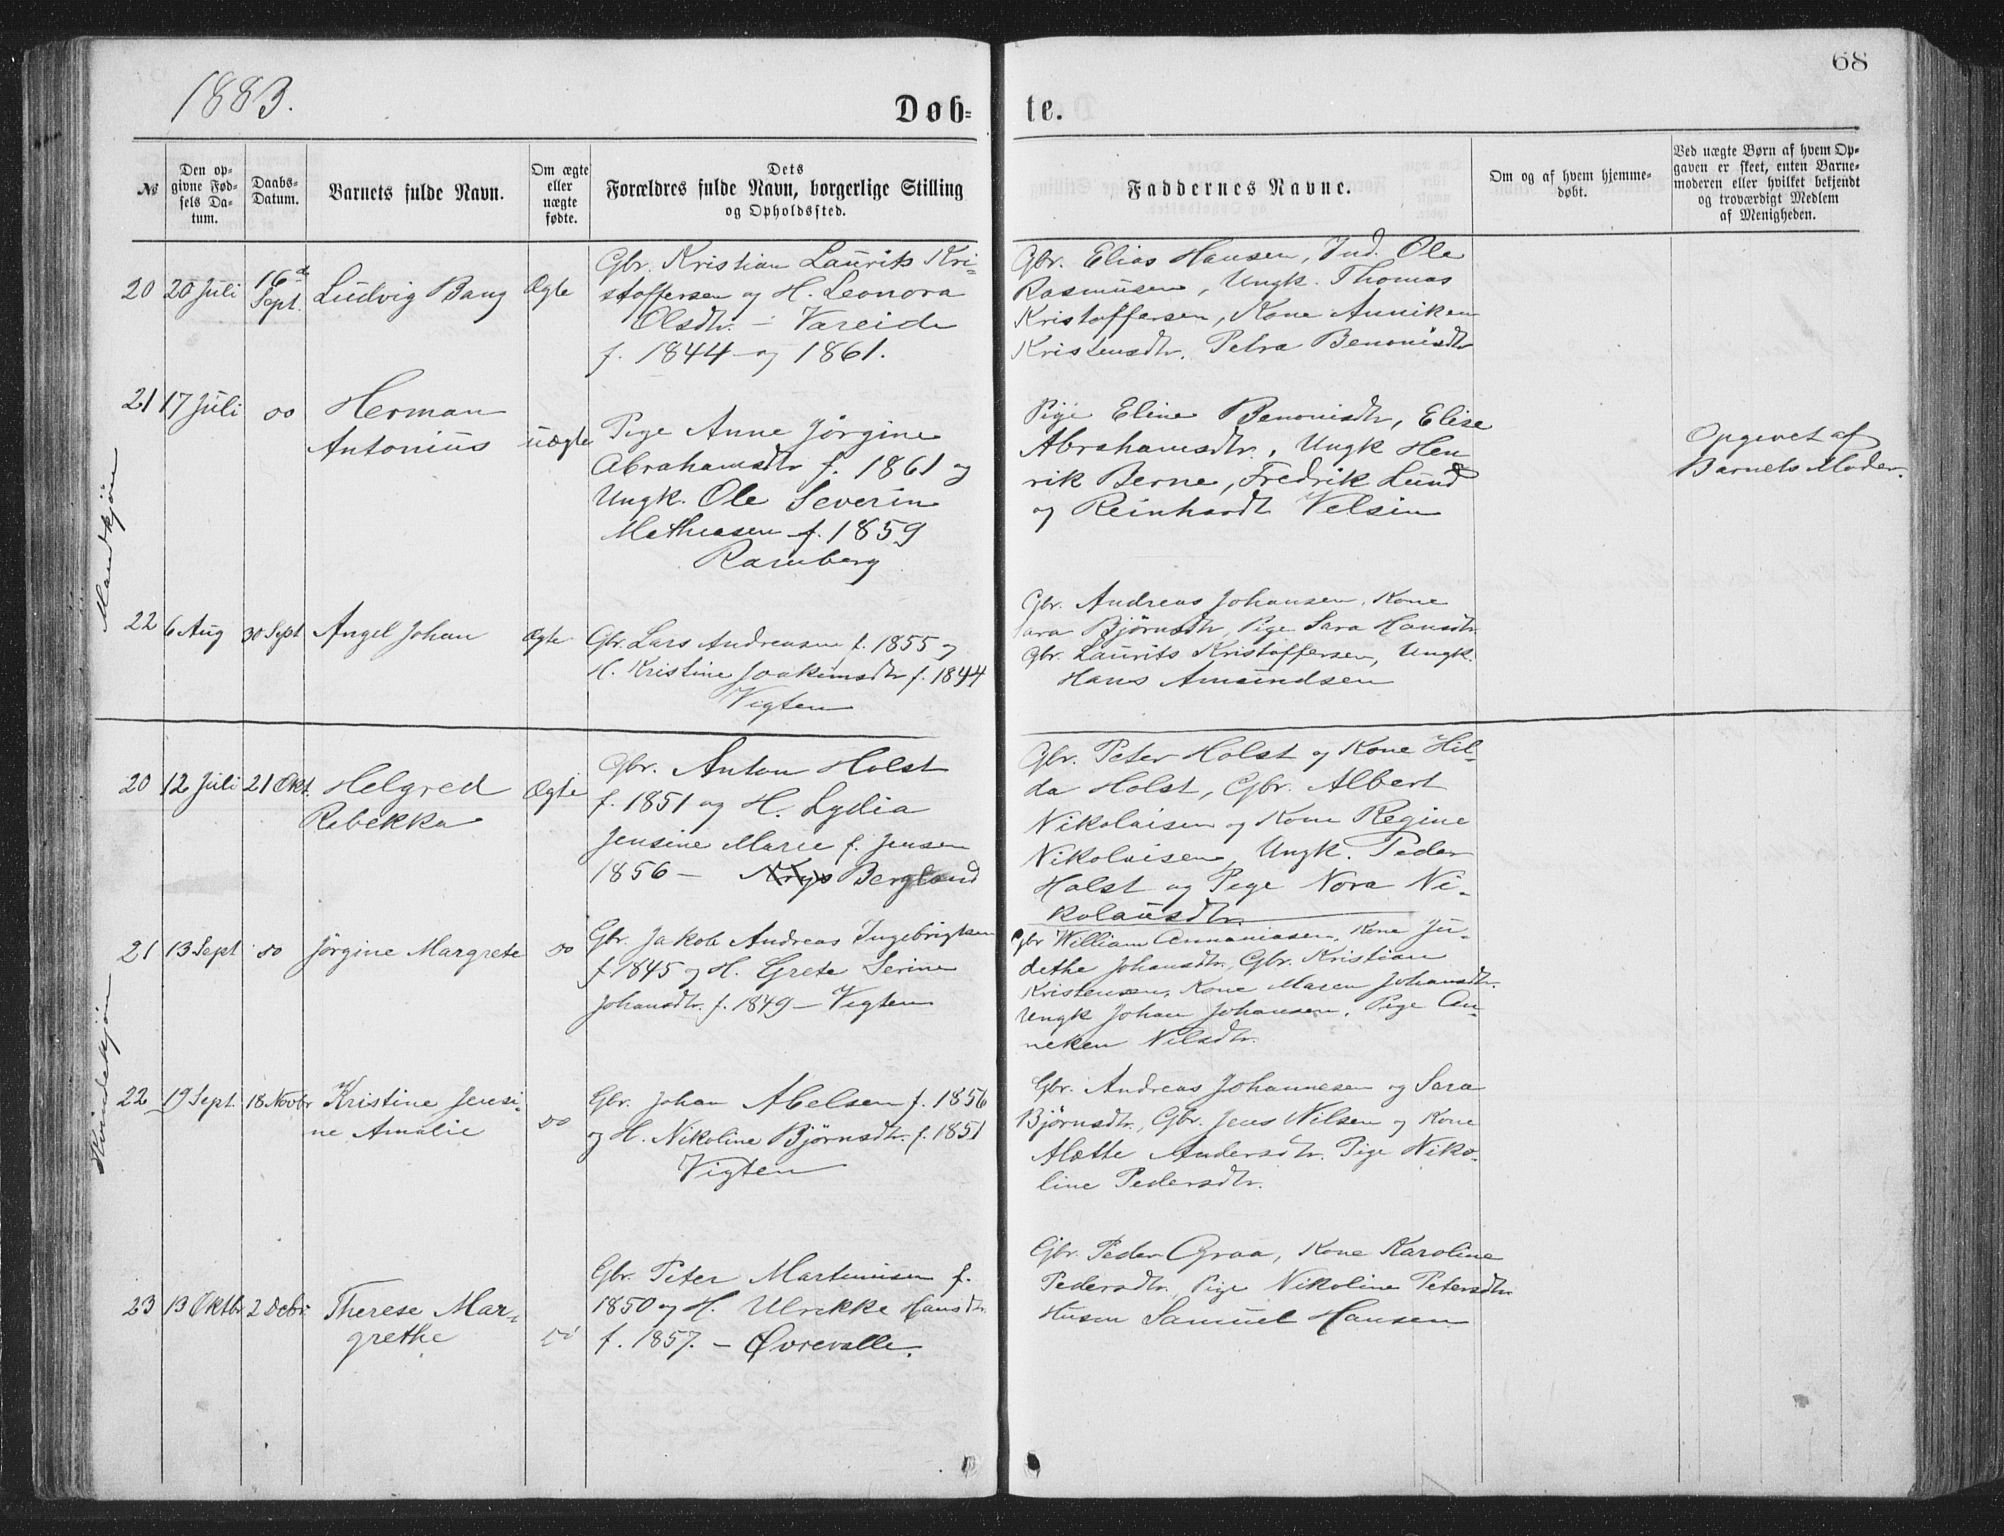 1883.
68
Døb-
te.
№
Den op-
givne Fød-
sels Da-
tum.
Daabs-
Datum.
Barnets fulde Navn.
Om ægte
eller
uægte
fødte.
Dets
Forældres fulde Navn, borgerlige Stilling
og Opholdssted.
Faddernes Navne.
Om og af hvem hjemme-
døbt.
Ved uægte Børn af hvem Op-
gaven er skeet, enten Barne-
moderen eller hvilket bekjendt
og troværdigt Medlem
af Menigheden.
Mandkjøn
20 20 Juli 16de Sept. Ludvig Bang Ægte
Gbr. Kristian Laurits Kri-
stoffersen og H. Leonora
Olsdtr. - Vareide
f. 1844 og 1861.
Gbr. Elias Hansen, Ind. Ole
Rasmusen, Ungk. Thomas
Kristoffersen, Kone Anniken
Kristensdtr. Petra Benonisdtr
21 17 Juli do Herman
Antonius uægte
Pige Anne Jørgine
Abrahamsdtr f. 1861 og
Ungk. Ole Severin
Mathiasen f. 1859
Ramberg
Pige Eline Benonisdtr, Elise
Abrahamsdtr, Ungk Hen
rik Berne, Fredrik Lund
og Reinhardt Velsin
Opgivet af
Barnets Moder.
22 6 Aug 30 Sept Angel Johan Ægte
Gbr. Lars Andreasen f. 1855 og
H. Kristine Joakimsdtr f. 1844
Vigten
Gbr. Andreas Johansen, Kone
Sara Bjørnsdtr, Pige Sara Hansdtr
Gbr. Laurits Kristoffersen, Ungk.
Hans Amundsen
Kvindekjøn
20 12 Juli 21 Okt. Helgred
Rebekka Ægte
Gbr. Anton Holst
f. 1851 og H. Lydia
Jensine Marie f. Jensen
1856 - Bergland
Gbr. Peter Holst og Kone Hil-
da Holst, Gbr. Albert
Nikolaisen og Kone Regine
Nikolaisen, Ungk. Peder
Holst og Pige Nora Ni-
kolaisdtr.
21 13 Sept do Jørgine Margrete do
Gbr. Jakob Andreas Ingebrigtsen
f 1845 og H. Grete Serine
Johansdtr. f. 1849 - Vigten
Gbr William Annaniasen, Kone Ju-
dethe Johansdtr, Gbr. Kristian
Kristensen, Kone Maren Johansdtr.
Ungk Johan Johansen, Pige An-
neken Nilsdtr.
22 19 Sept. 18 Novbr Kristine Jensi-
ne Amalie do
Gbr. Johan Abelsen f. 1856
og H. Nikoline Bjørnsdtr. f. 1851
Vigten
Gbr. Andreas Johannesen og Sara
Bjørnsdtr., Gbr. Jens Nilsen og Kone
Alette Andersdtr. Pige Niko-
line Pedersdtr.
23 13 Oktbr 2 Debr Therese Mar-
grethe do
Gbr. Peter Martinusen f.
1850 og H. Ulrikke Hansdtr
f. 1857. - Øvrevalle.
Gbr. Peder Graa, Kone Karoline
Pedersdtr, Pige Nikoline Petersdtr
Husm Samuel Hansen